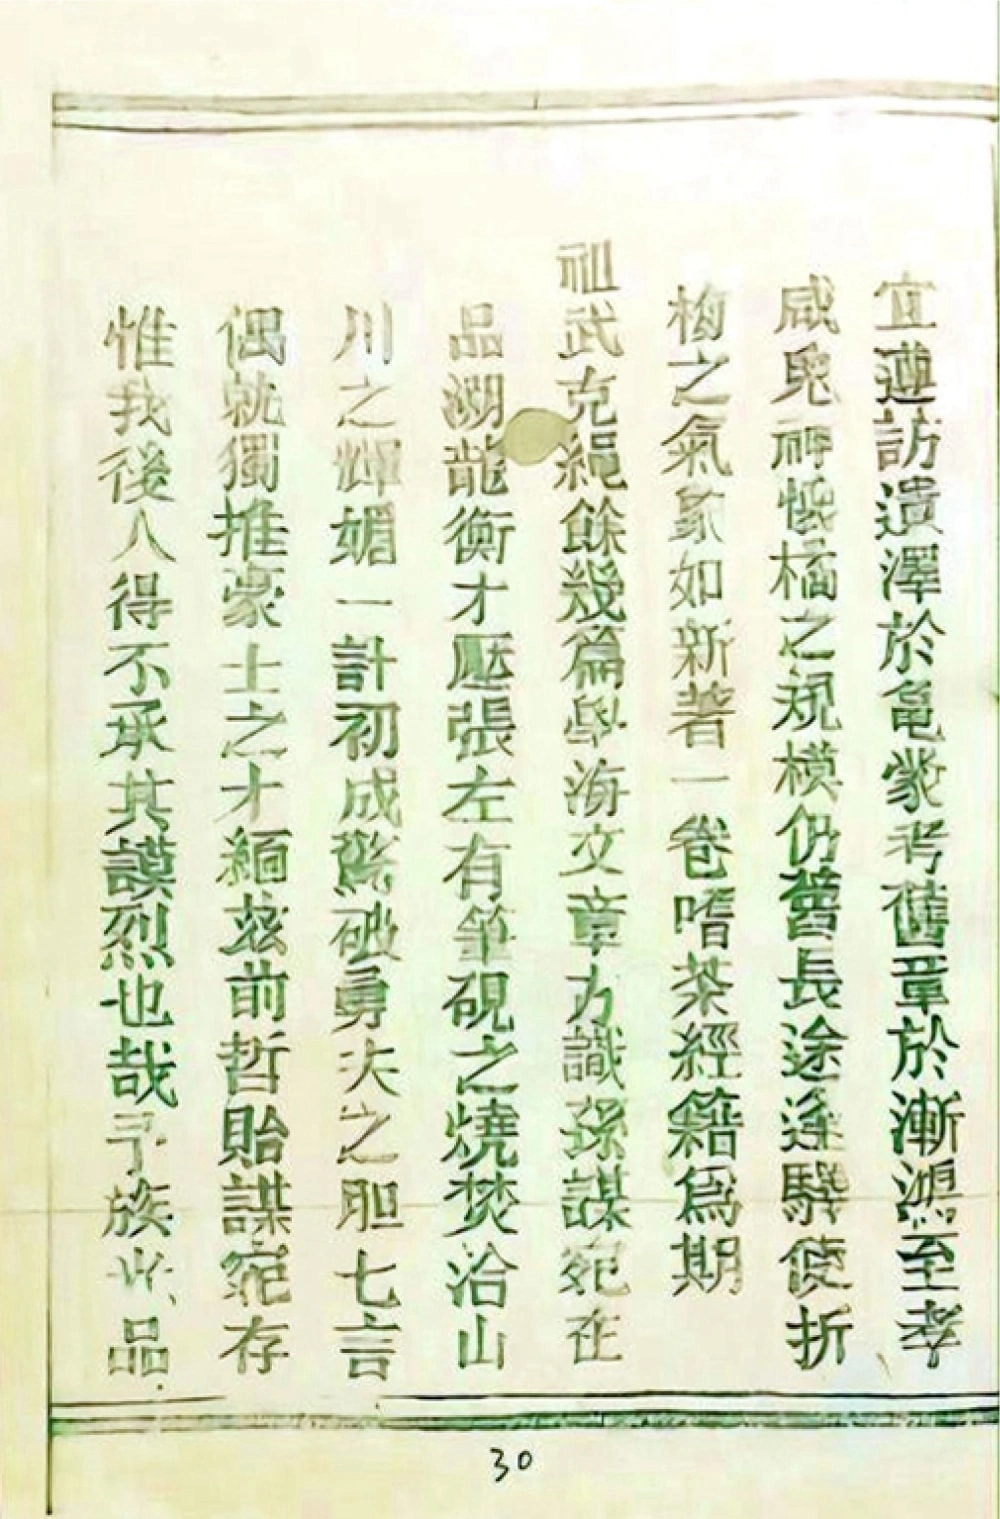 宜遵訪遺澤於龜蒙考舊章於漸鴻至孝
咸鬼神懷橘之規模仍舊長途逢驛使折
梅之氣象如新著一卷嗜茶經籍爲期
祖武克繩餘幾篇學海文章力識孫謀宛在
品湖龍衡才壓張左有筆硯之燒焚洽山
川之輝媚一計初成驚破勇夫之胆七言
偶就獨推豪士之才緬茲前哲貽謀宛存
惟我後人得不承其謨烈也哉予族出品
30